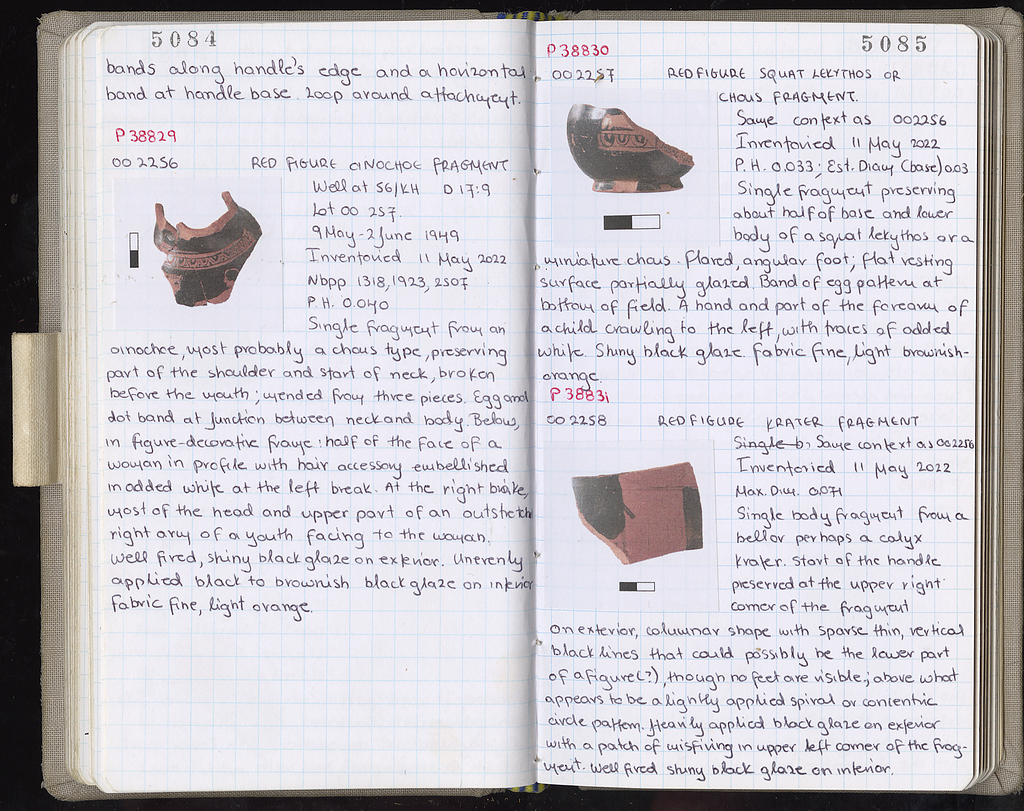 5084
bands along handle's edge and a horizontal
band at handle base. Loop around attachment.
P 38829
00 2256 RED FIGURE OINOCHOE FRAGMENT
Well at 56/KH D 17:9
Lot 00 257.
9 May - 2 June 1949
Inventoried 11 May 2022
Nbpp 1318, 1923, 2507
P.H. 0.040
Single fragment from an
oinochoe, most probably a chous type, preserving
part of the shoulder and start of neck, broken
before the mouth; mended from three pieces. Egg and
dot band at junction between neck and body. Below,
in figure-decorative frame: half of the face of a
woman in profile with hair accessory embellished
in added white at the left break. At the right brake,
most of the head and upper part of an outstretch
right arm of a youth facing to the woman.
Well fired, shiny black glaze on exterior. Unevenly
applied black to brownish black glaze on interior
Fabric fine, light orange.
5085
P 38830
00 2257 RED FIGURE SQUAT LEKYTHOS OR
CHOUS FRAGMENT.
Same context as 002256
Inventoried 11 May 2022
P.H. 0.033; Est. Diam (base) 0.03
Single fragment preserving
about half of base and lower
body of a squat lekythos or a
miniature chous. Flared, angular foot; flat resting
surface partially glazed. Band of egg pattern at
bottom of field. A hand and part of the forearm of
a child crawling to the left, with traces of added
white. Shiny black glaze. Fabric fine, light brownish-
orange.
P 38831
00 2258 RED FIGURE KRATER FRAGMENT
Single b, Same context as 002256
Inventoried 11 May 2022
Max. Dim. 0.071
Single body fragment from a
bell or perhaps a calyx
krater. Start of the handle
preserved at the upper right
corner of the fragment
On exterior, columnar shape with sparse thin, vertical
black lines that could possibly be the lower part
of a figure(?), though no feet are visible; above what
appears to be a lightly applied spiral or concentric
circle pattern. Heavily applied black glaze on exterior
with a patch of misfiring in upper left corner of the frag-
ment. Well fired shiny black glaze on interior.